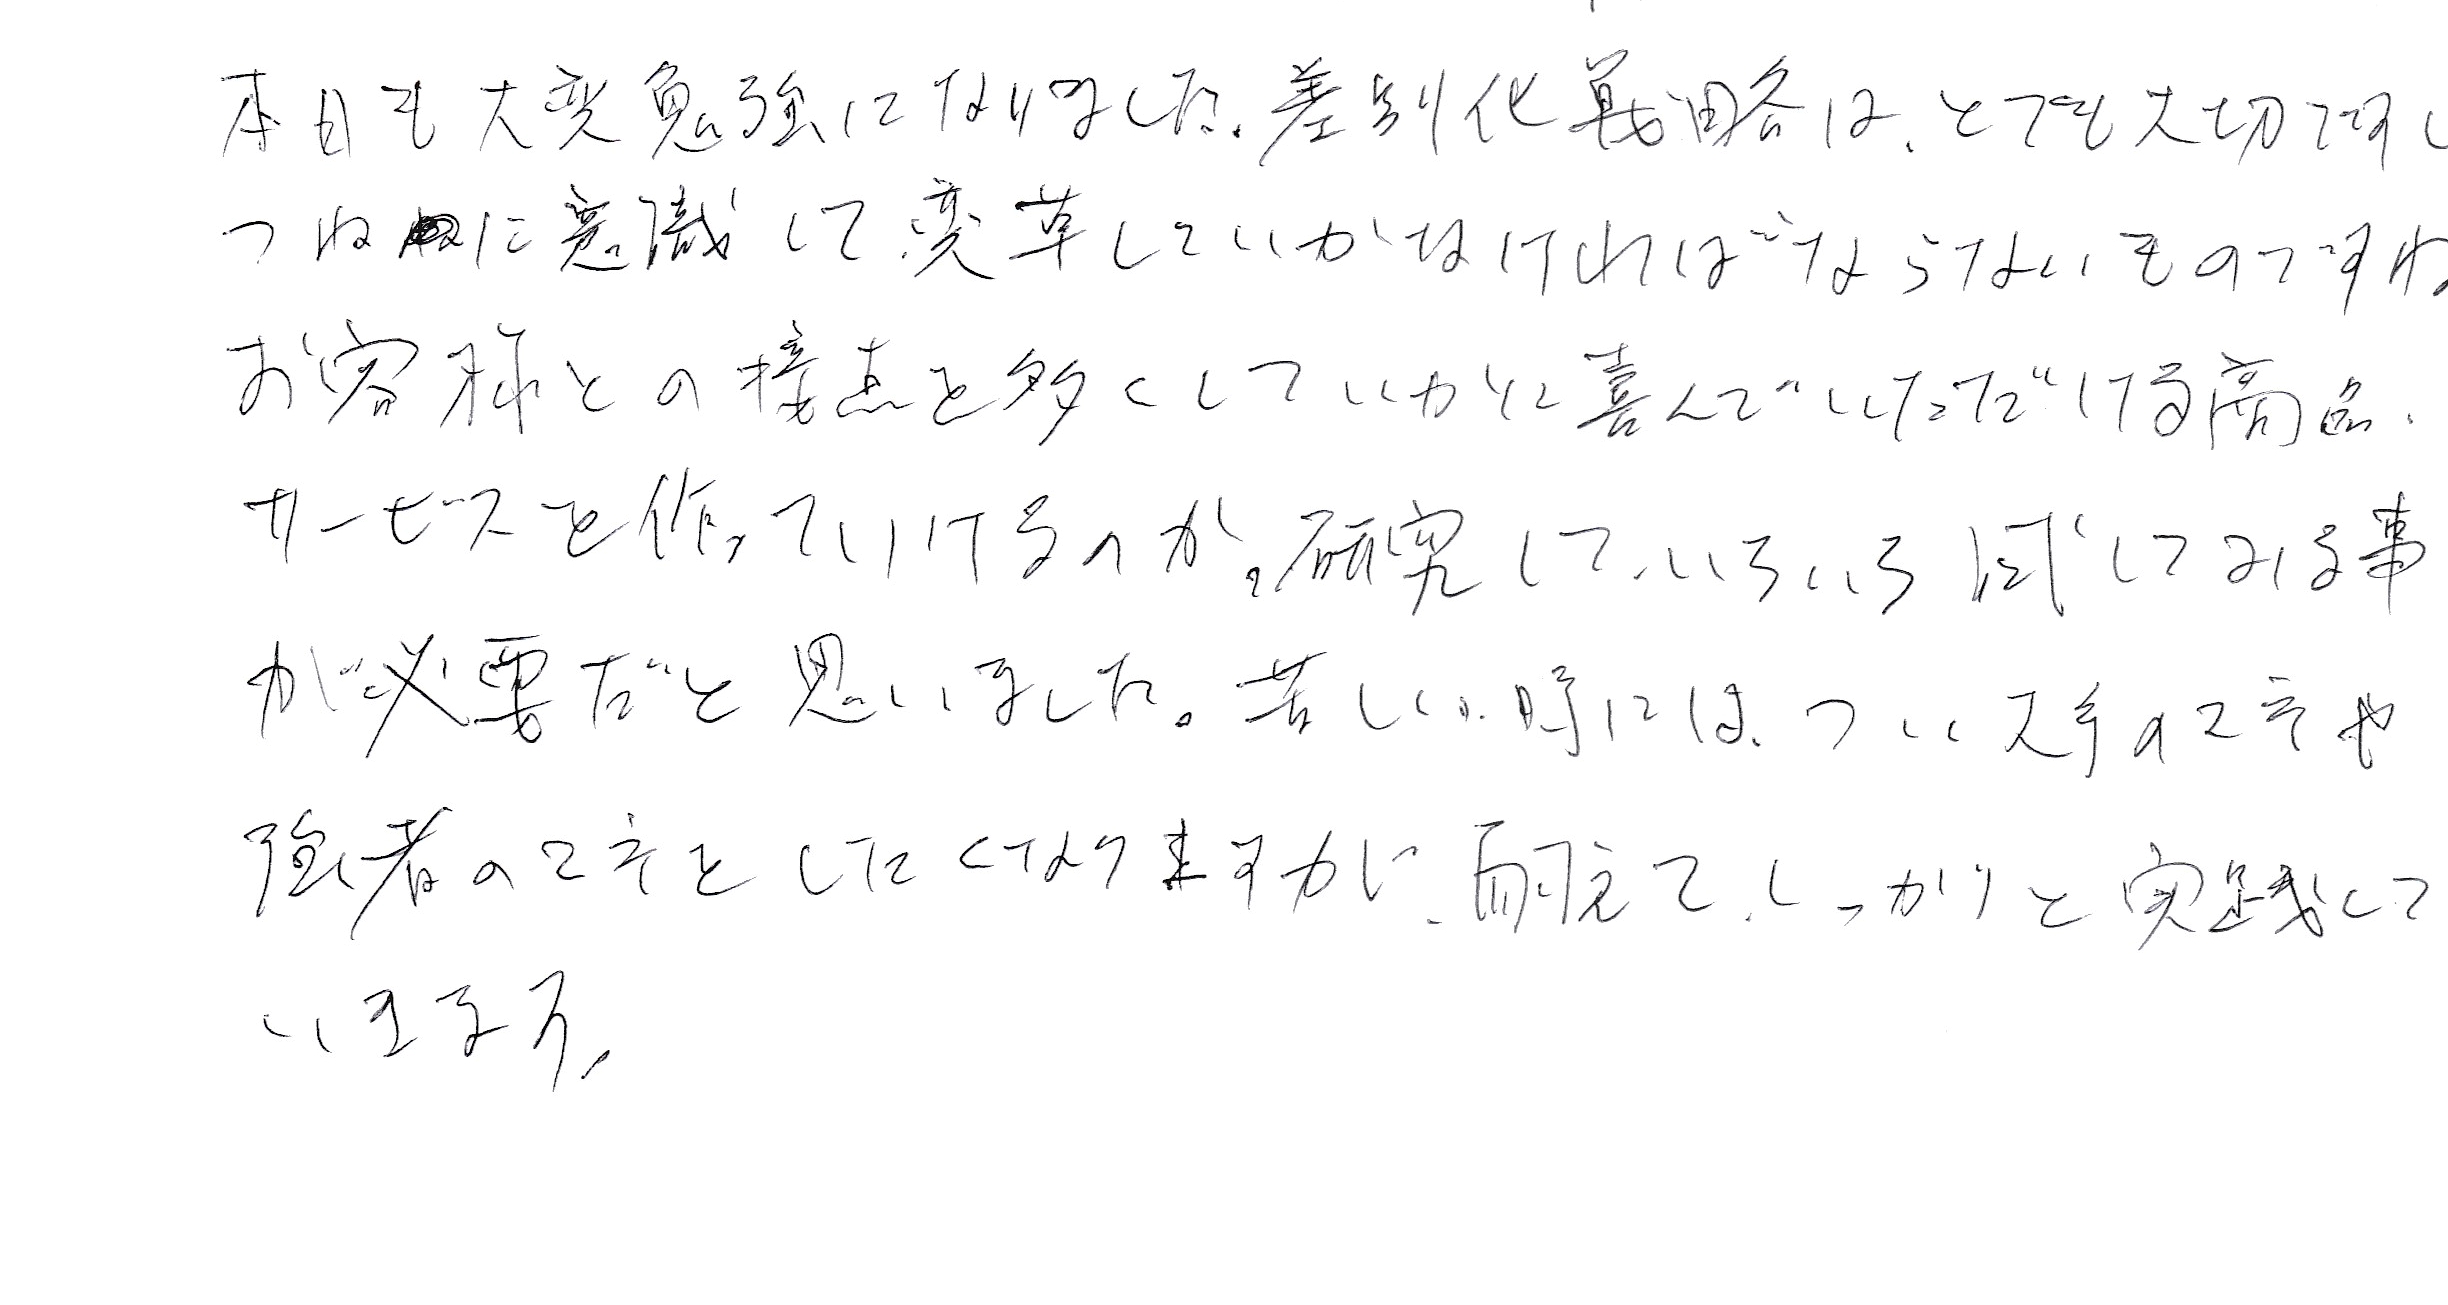 本日も大変勉強になりました。差別化戦略は、とても大切ですし
つねに意識して変革していかなければならないものですね
お客様との接点を多くしていかに喜んでいただける商品、
サービスを作っていけるのか。研究して、いろいろ試してみる事
が必要だと思いました。苦しい時には、つい大手のマネや
強者のマネをしたくなりますが、耐えて、しっかりと実践して
いきます。